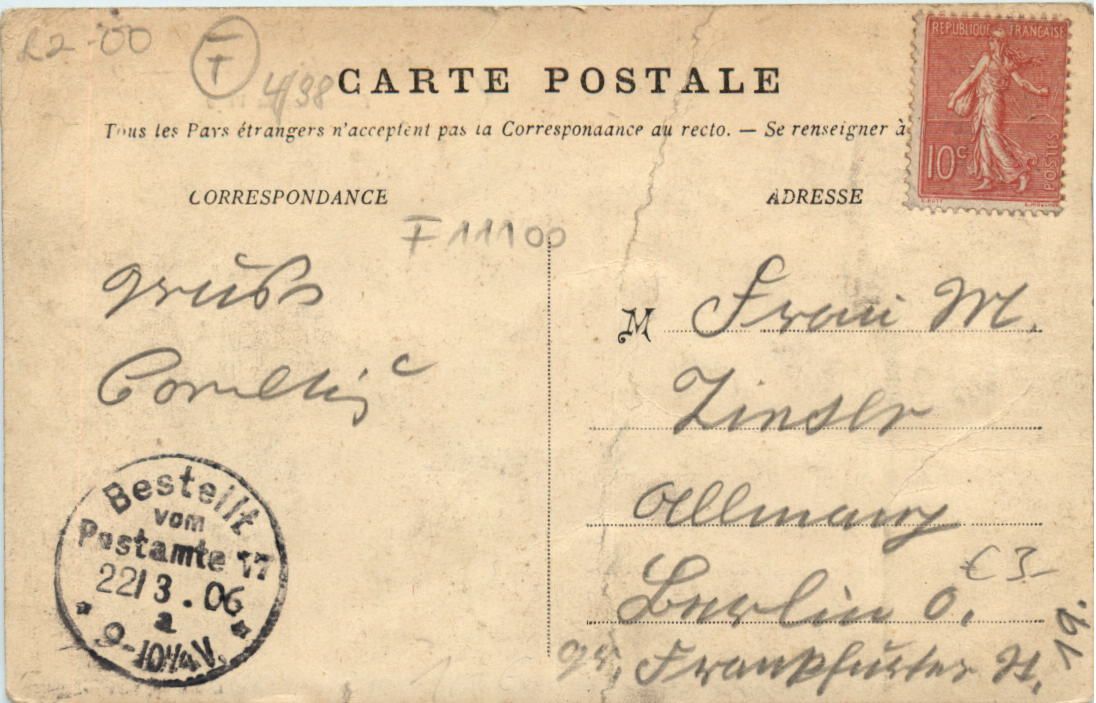 R2-00
F
4/98
CARTE POSTALE
Tous les Pays étrangers n'acceptent pas la Correspondance au recto. — Se renseigner à
RÉPUBLIQUE FRANÇAISE
10c
POSTES
CORRESPONDANCE
ADRESSE
F 11100
Gruss
M Frau M.
Zinsler
Allmany
Berlin O.
Gr. Frankfurter St.
19.
€ 3-
Bestellt
vom
Postamte 17
22/3.06
a
9-10¼V.